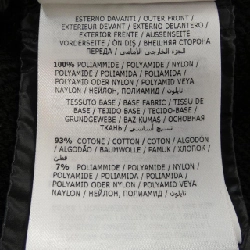 ESTERNO DAVANTI / OUTER FRONT /
EXTERIEUR DEVANT / EXTERNO DELANTERO /
EXTERIOR FRENTE / AUSSENSEITE
VORDERSEITE / ÖN DIŞ / ВНЕШНЯЯ СТОРОНА
ПЕРЕДА /
100% POLIAMMIDE / POLYAMIDE / NYLON /
POLYAMIDE / POLIAMIDA / POLIAMIDA /
POLYAMID ODER NYLON / POLYAMID VEYA
NAYLON / НЕЙЛОН, ПОЛИАМИД / نايلون
TESSUTO BASE / BASE FABRIC / TISSU DE
BASE / TEJIDO BASE / TECIDO-BASE /
GRUNDGEWEBE / BAZ KUMAŞ / ОСНОВНАЯ
ТКАНЬ /
93% COTONE / COTTON / COTON / ALGODON
/ ALGODÃO / BAUMWOLLE / PAMUK / ХЛОПОК /
قطن
7% POLIAMMIDE / POLYAMIDE / NYLON /
POLYAMIDE / POLIAMIDA / POLIAMIDA /
POLYAMID ODER NYLON / POLYAMID VEYA
NAYLON / НЕЙЛОН, ПОЛИАМИД / نايلون